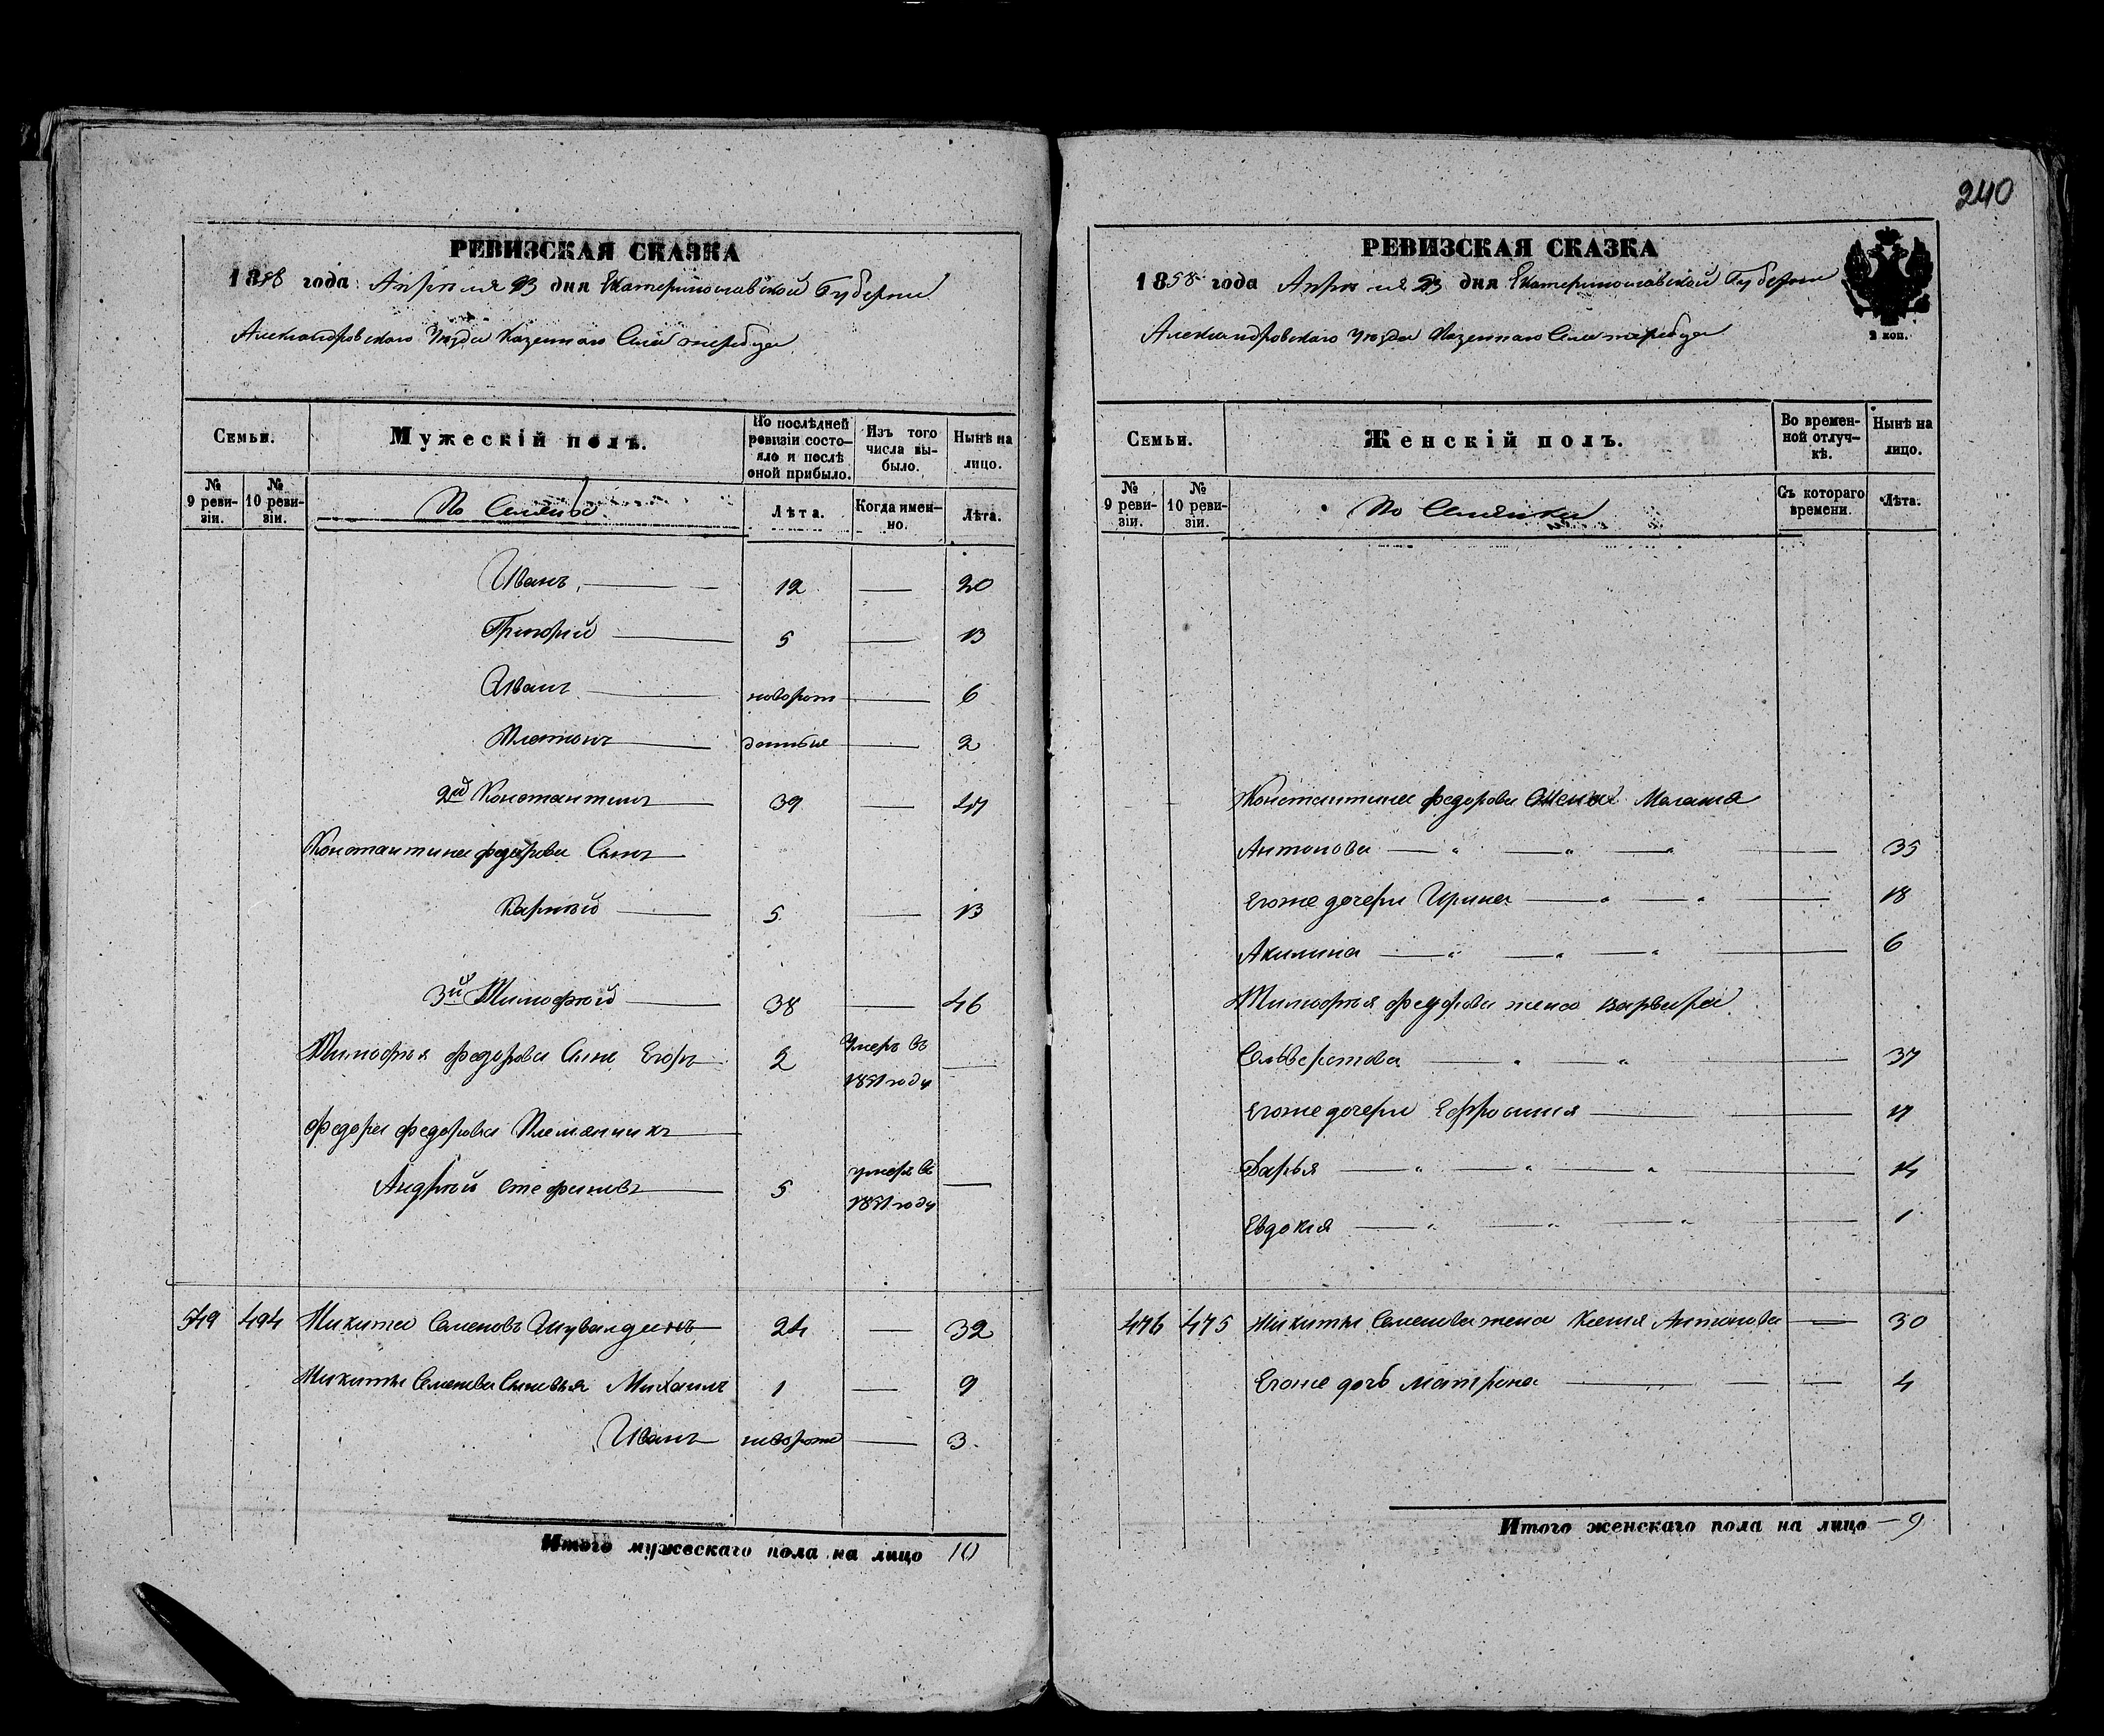 РЕВИЗСКАЯ СКАЗКА
1858 года Апреля 23 дня Екатеринославской Губернии
Александровскаго Уезда Казеннаго Села
Семьи.
Мужескій полъ.
По послѣдней ревизіи состояло и послѣ оной прибыло.
Изъ того числа выбыло.
Нынѣ на лицо.
№ 9 ревизіи.
№ 10 ревизіи.
Лѣта.
Когда именно.
Лѣта.
Иванъ 12 — 20
Григорій 5 — 13
Иванъ новорож 6
Платонъ денные — 2
2й Константинъ 39 — 47
Константина Федорова Сынъ
Карпѣй 5 — 13
3й Тимофѣй 38 — 46
Тимофѣя Федорова Сынъ Егоръ 2 Умеръ въ 1851 году —
Федора Федорова Племянникъ
Андрѣй Стефановъ 5 умеръ въ 1851 году —
549 494 Никита Семеновъ 24 — 32
Никиты Семенова Сыновья Михаилъ 1 — 9
Иванъ новорож — 3
Итого мужескаго пола на лицо 10
240
РЕВИЗСКАЯ СКАЗКА
1858 года Апреля 23 дня Екатеринославской Губернии
Александровскаго Уезда Казеннаго Села
2 коп.
Семьи.
Женскій полъ.
Во временной отлучкѣ.
Нынѣ на лицо.
№ 9 ревизіи.
№ 10 ревизіи.
Съ котораго времени.
Лѣта.
Константина Федорова Жена Малаша
Антонова 35
Егоже дочери Ирина 18
Акилина 6
Тимофѣя Федорова жена Варвара
37
Егоже дочери Ефросиния 17
Дарья 14
Евдокия 1
476 475 Никиты Семенова жена Ксения Антонова — 30
Егоже дочь Матрона 4
Итого женскаго пола на лицо — 9